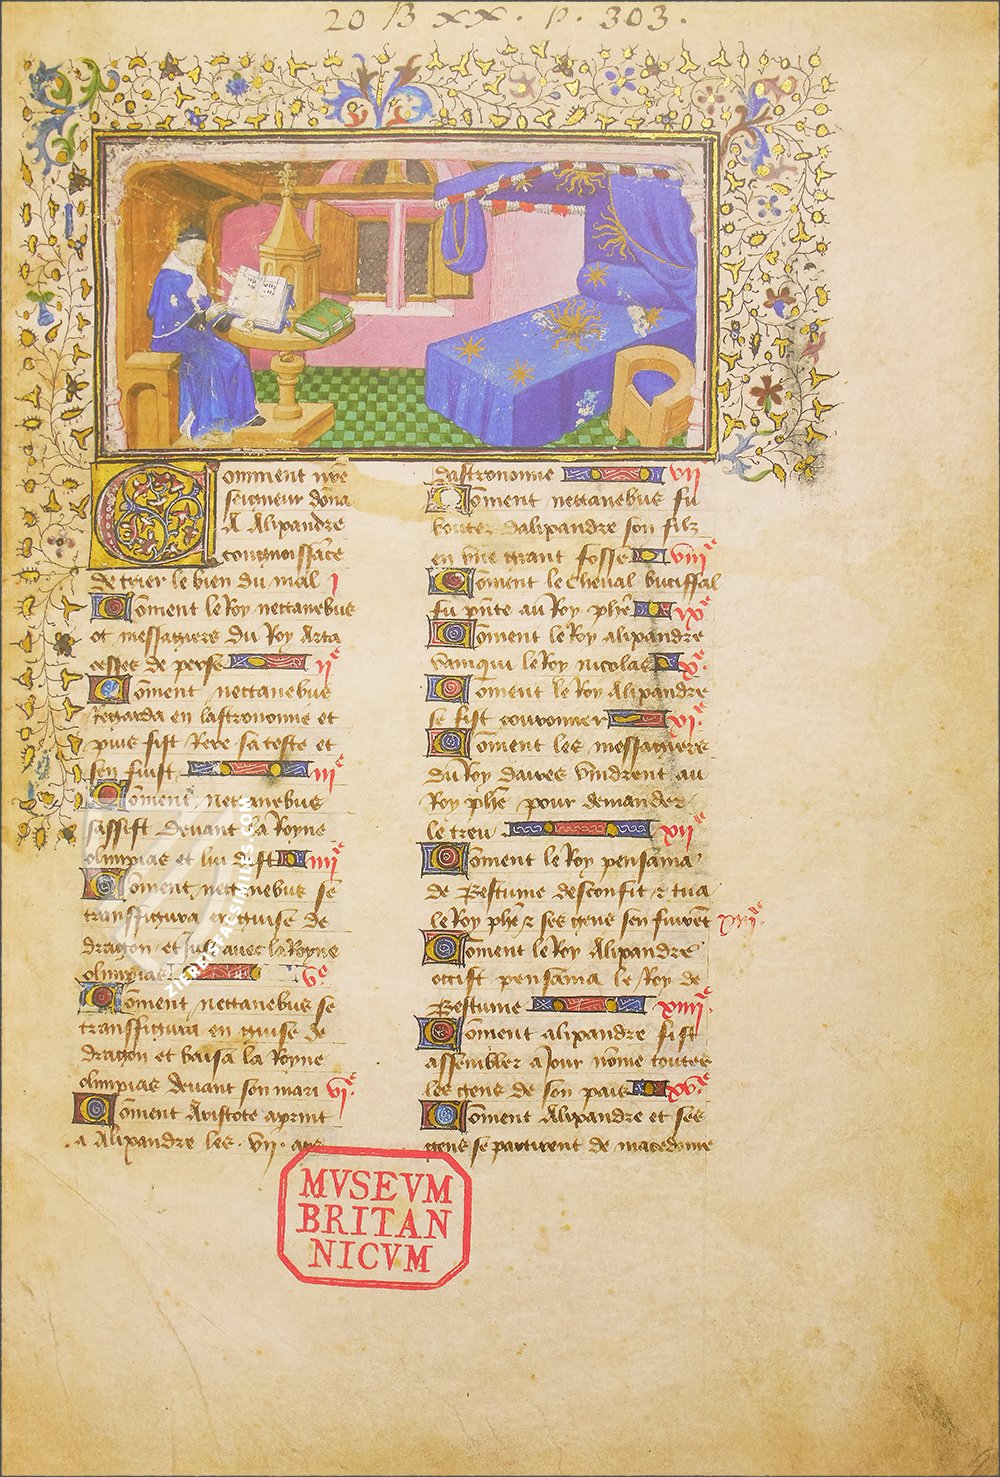 20 B XX. P. 303.
Comment nre
seigneur dona
A Alixandre
congnoissance
de trier le bien du mal I
Coment le Roy nectanebus
ot messagiers du Roy Arta
cesses de perse iie
Coment nectanebus
Regarda en lastronomie et
puis fist Rere sa teste et
sen fuist iiie
Coment nectanebus
sassist devant la Royne
olimpias et lui dist iiiie
Coment nectanebus se
transfigura en guise de
dragon et avec la Royne
olimpias Ve
Coment nectanebus se
transfigura en guise de
dragon et baisa la Royne
olimpias devant son mari vie
Coment Aristote aprint
a Alixandre les .vii. ars
dastronomie vii
Coment nectanebus fu
boutez dalixandre son filz
en une grant fosse viiie
Coment le cheval buciffal
fu pnte au Roy phe ixe
Coment le Roy alixandre
vainqui le Roy nicolas xe
Coment le Roy Alixandre
se fist couronner xie
Coment les messagiers
du Roy daires vindrent au
Roy phe pour demander
le treu xiie
Coment le Roy pensama
de Bestume desconfit & tua
le Roy phe & ses gens sen fuirent xiiie
Coment le Roy Alixandre
occist pensama le Roy de
Bestume xiiiie
Coment alixandre fist
assembler a Jour nome toutes
les gens de son pais xve
Coment Alixandre et ses
gens se partirent de macedoine
MVSEVM
BRITAN
NICVM